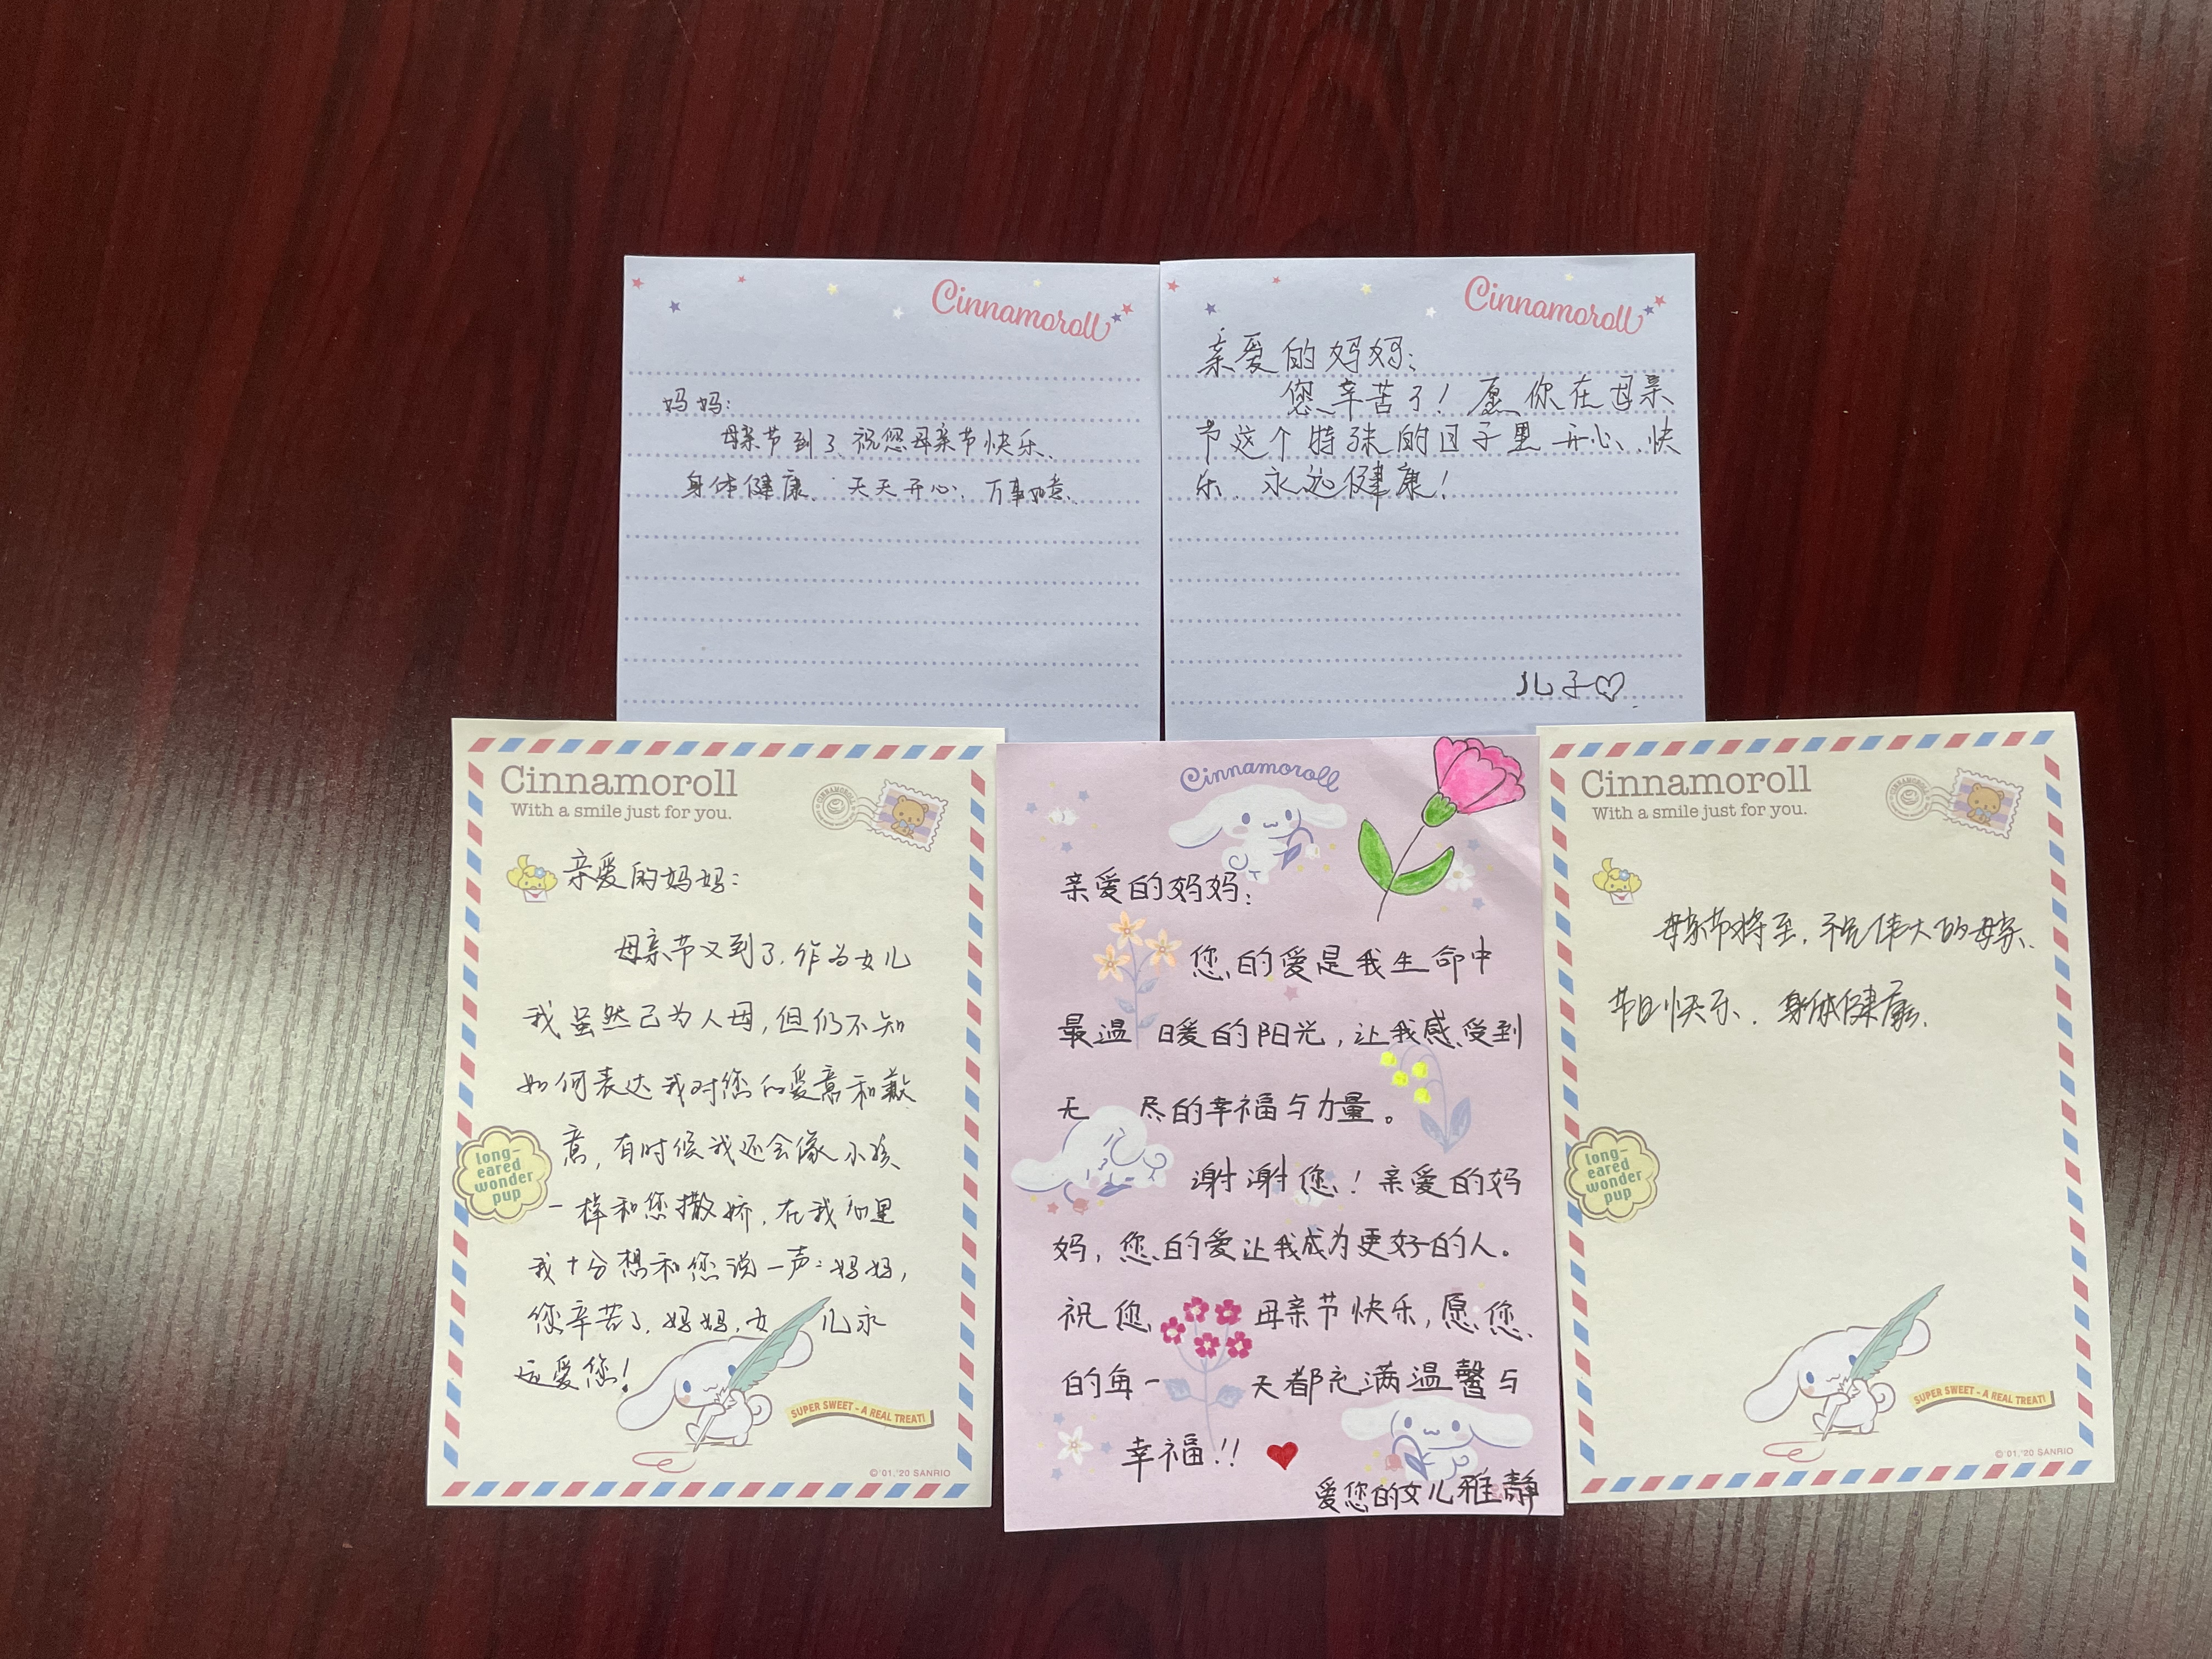 Cinnamoroll
妈妈：
母亲节到了、祝您母亲节快乐、
身体健康、天天开心、万事如意、
Cinnamoroll
亲爱的妈妈：
您辛苦了！愿你在母亲
节这个特殊的日子里开心、快
乐、永远健康！
儿子♡
Cinnamoroll
With a smile just for you.
CINNAMOROLL
亲爱的妈妈：
母亲节又到了，作为女儿
我虽然已为人母，但仍不知
如何表达我对您的爱意和歉
意，有时候我还会像小孩
一样和您撒娇，在我心里
我十分想和您说一声：妈妈，
您辛苦了，妈妈，女儿永
远爱您！
long-
eared
wonder
pup
SUPER SWEET - A REAL TREAT!
©'01,'20 SANRIO
Cinnamoroll
亲爱的妈妈：
您的爱是我生命中
最温暖的阳光，让我感受到
无尽的幸福与力量。
谢谢您！亲爱的妈
妈，您的爱让我成为更好的人。
祝您母亲节快乐，愿您
的每一天都充满温馨与
幸福！！
爱您的女儿雅静
Cinnamoroll
With a smile just for you.
CINNAMOROLL
母亲节将至，祝伟大的母亲、
节日快乐、身体健康、
long-
eared
wonder
pup
SUPER SWEET - A REAL TREAT!
©'01,'20 SANRIO